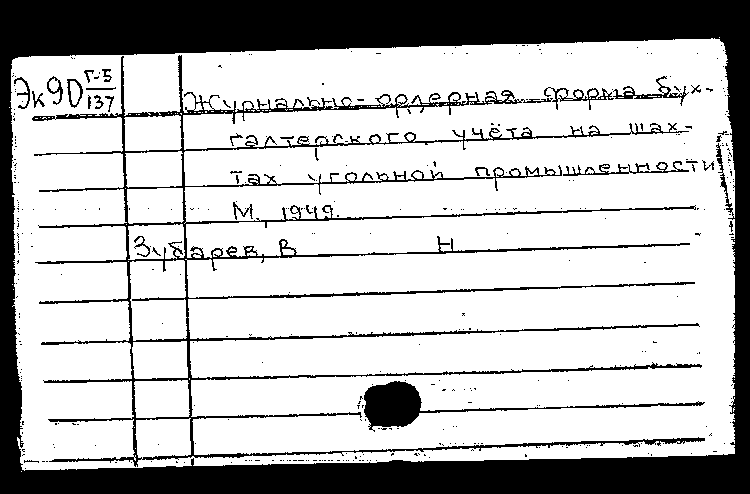 Эк90 Г-5/137
Журнально-ордерная форма бух-
галтерского учёта на шах-
тах угольной промышленности
М., 1949.
Зубарев, В Н